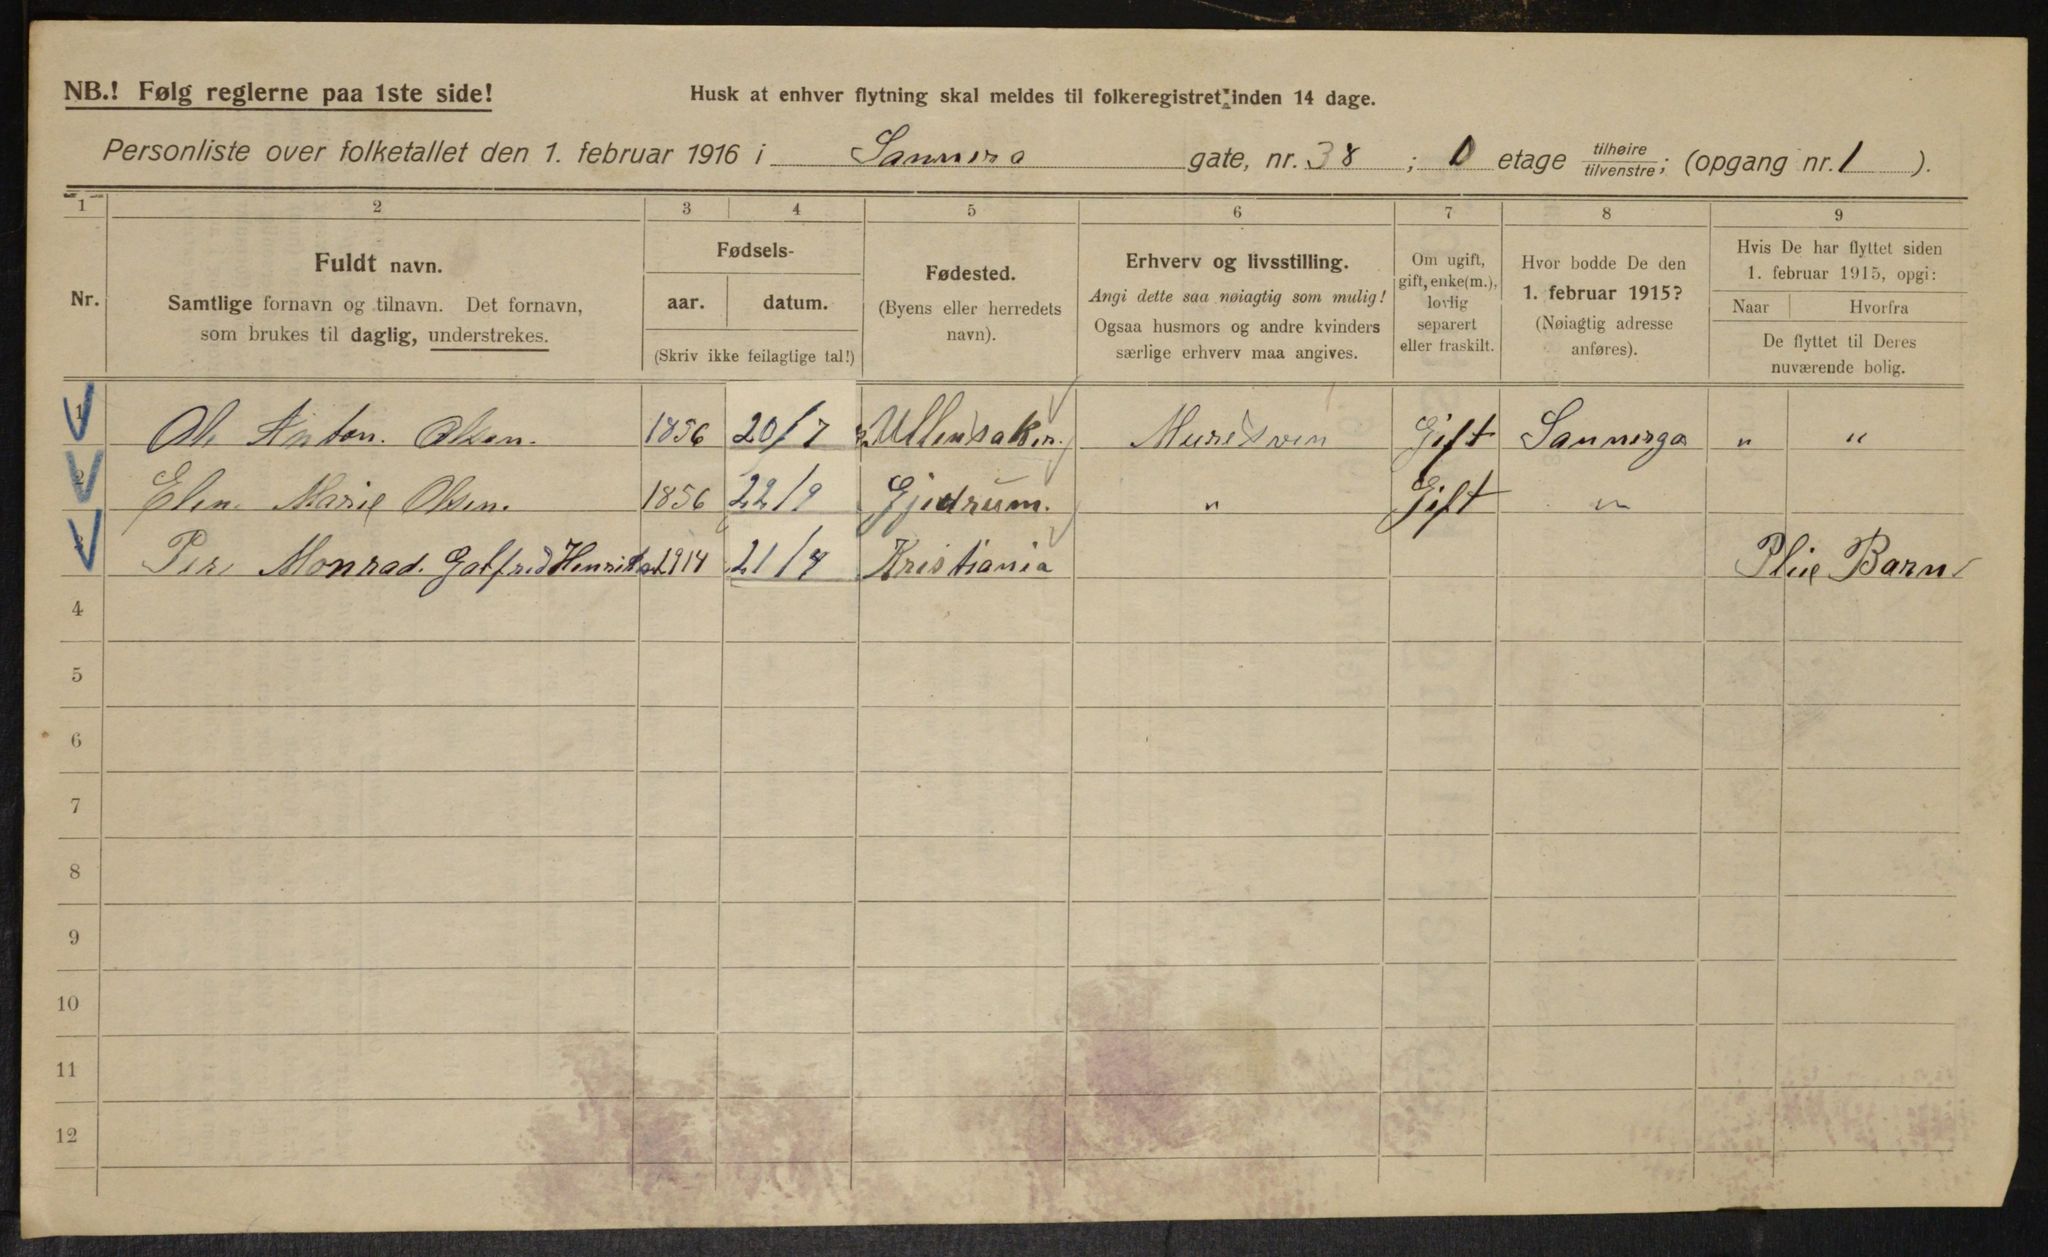 NB.! Følg reglerne paa 1ste side!
Husk at enhver flytning skal meldes til folkeregistret inden 14 dage.
Personliste over folketallet den 1. februar 1916 i Sannera gate, nr. 38 ; 0 etage tilhøire tilvenstre ; (opgang nr. 1 ).
1 2 3 4 5 6 7 8 9
Nr.
Fuldt navn.
Samtlige fornavn og tilnavn. Det fornavn,
som brukes til daglig, understrekes.
Fødsels-
aar. datum.
(Skriv ikke feilagtige tal!)
Fødested.
(Byens eller herredets
navn).
Erhverv og livsstilling.
Angi dette saa nøiagtig som mulig!
Ogsaa husmors og andre kvinders
særlige erhverv maa angives.
Om ugift,
gift, enke(m.),
lovlig
separert
eller fraskilt.
Hvor bodde De den
1. februar 1915?
(Nøiagtig adresse
anføres).
Hvis De har flyttet siden
1. februar 1915, opgi:
Naar Hvorfra
De flyttet til Deres
nuværende bolig.
1 Ole Anton Olsen. 1856 20/7 Ullensaker. Muresven Gift Sannerga " "
2 Elen Marie Olsen. 1856 22/9 Gjedrum. " Gift "
3 Per Monrad. Gotfred 1914 21/4 Kristiania Plie Barn
4
5
6
7
8
9
10
11
12